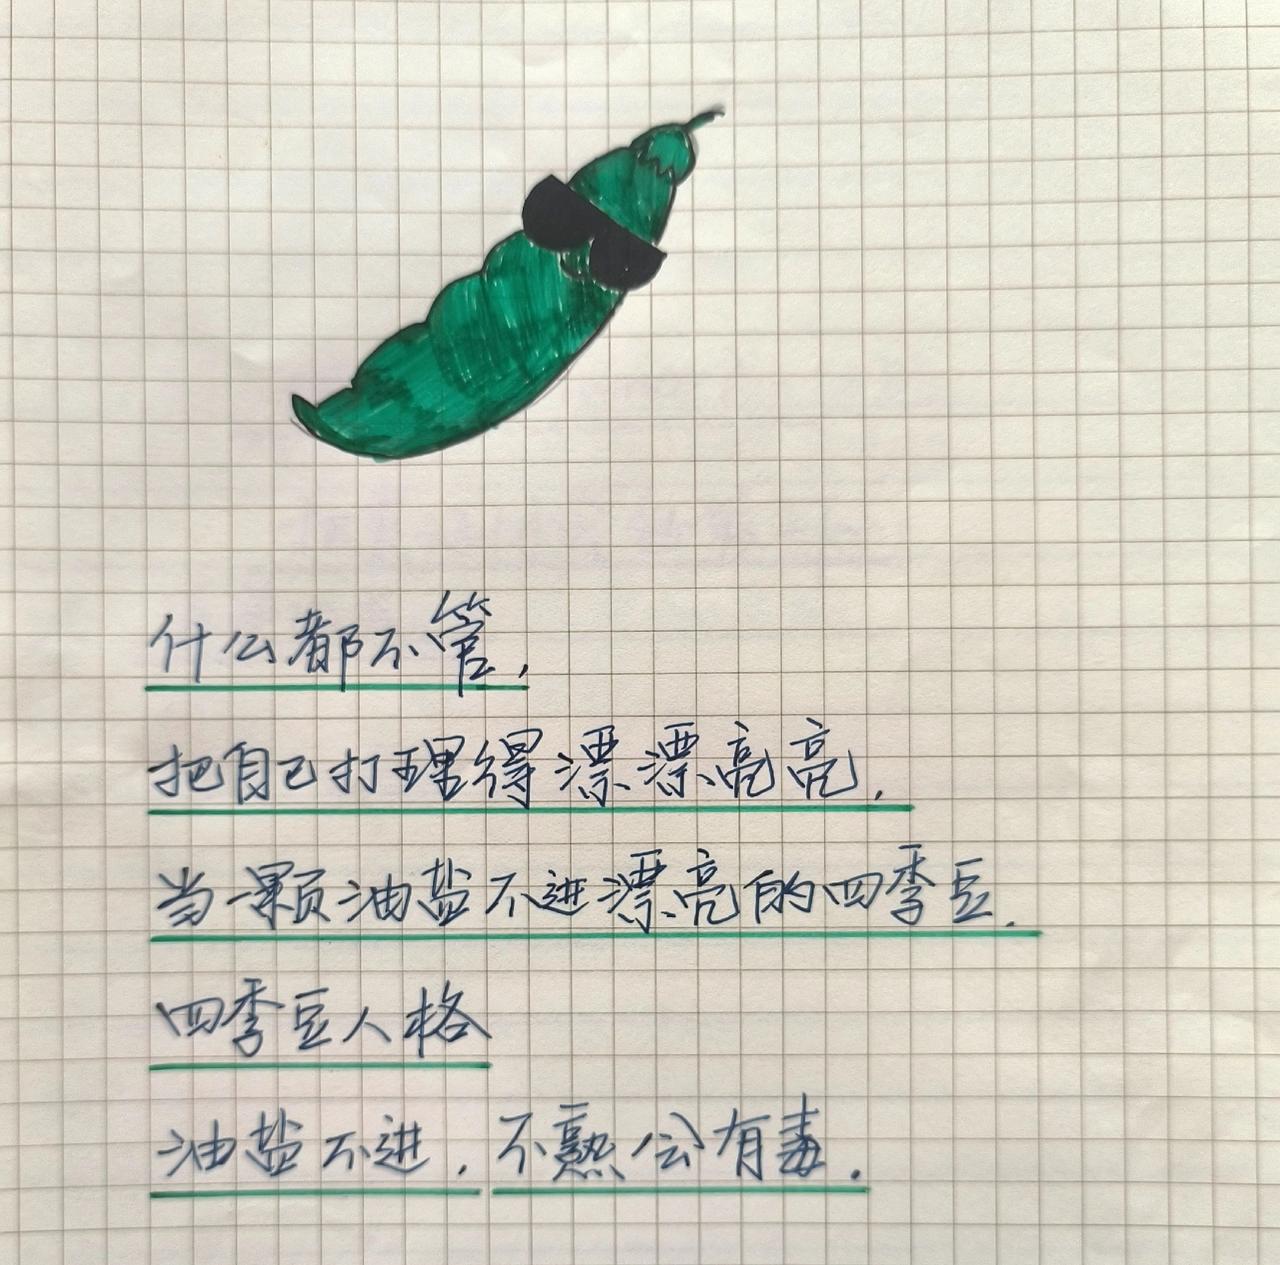 什么都不管,
把自己打理得漂漂亮亮.
当一颗油盐不进漂亮的四季豆.
四季豆人格
油盐不进.不熟会有毒.